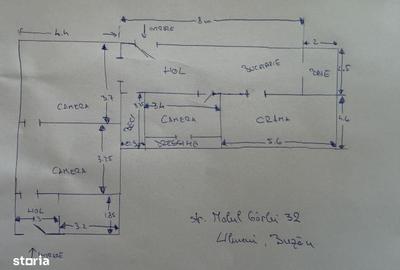 8m
INTRARE
4.4
2
HOL
BUCATARIE
BAIE
2.5
3.7
3.4
CAMERA
BECI
CAMERA
CRAMA
2.6
DEBARA
3.25
5.6
CAMERA
HOL
3.2
1.85
str. Malul Gârlei 32
Ulmeni, Buzău
INTRARE
storia